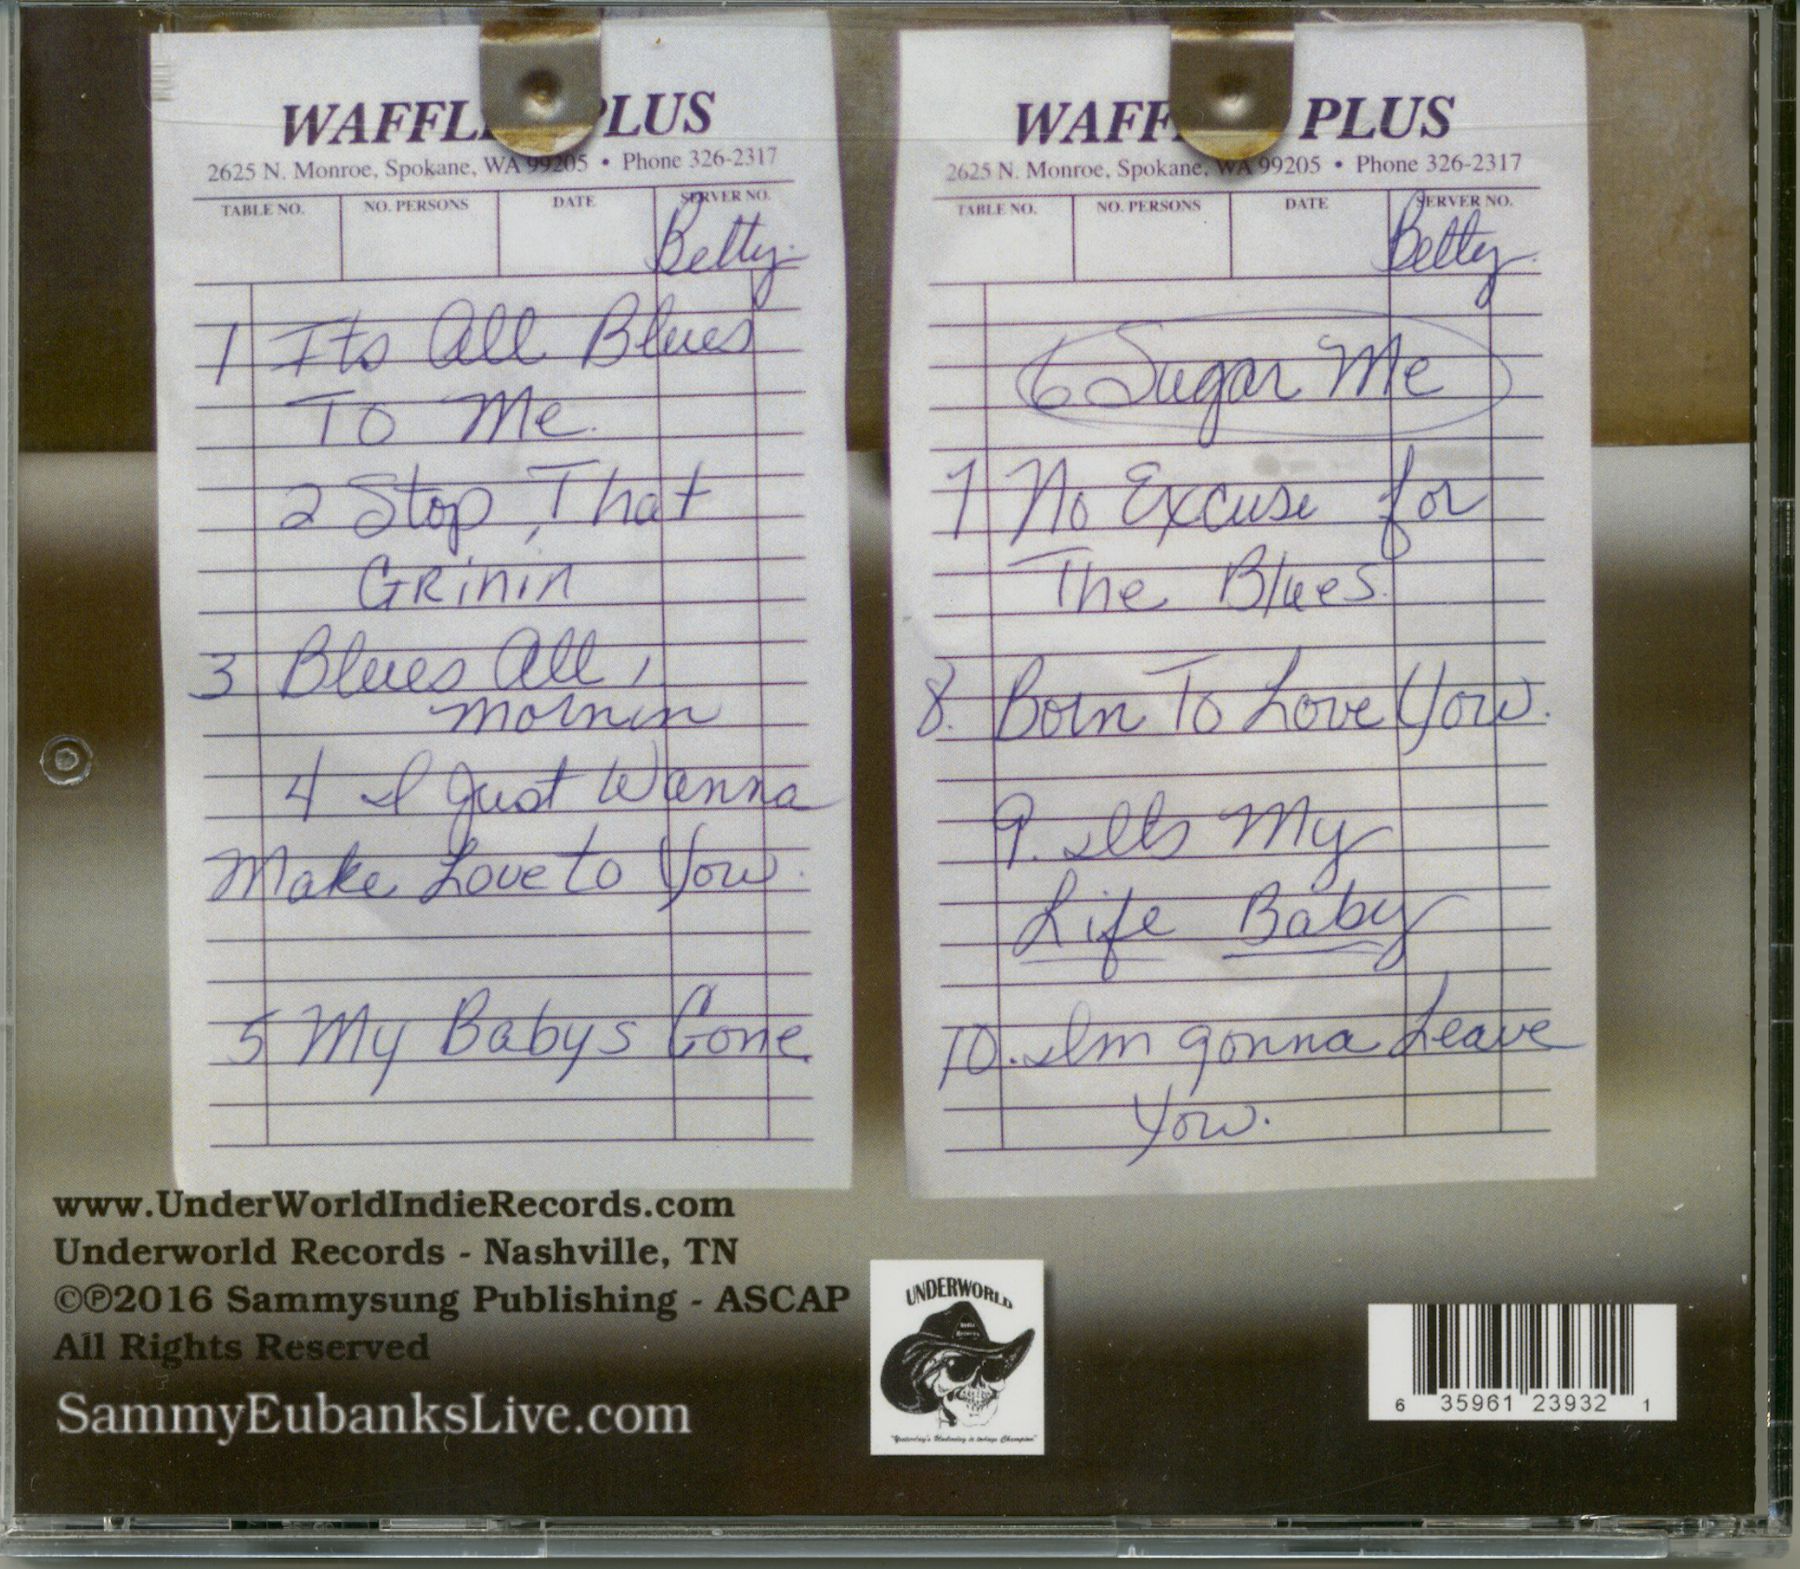 WAFFL PLUS
2625 N. Monroe, Spokane, WA 99205 • Phone 326-2317
TABLE NO. NO. PERSONS DATE SERVER NO.
Betty
1 Its All Blues
To Me.
2 Stop That
Grinin
3 Blues All
Mornin
4 I Just Wanna
Make Love to You.
5 My Babys Gone
WAFF PLUS
2625 N. Monroe, Spokane, WA 99205 • Phone 326-2317
TABLE NO. NO. PERSONS DATE SERVER NO.
Betty
6 Sugar Me
7 No Excuse for
The Blues.
8. Born To Love You.
9. Its My
Life Baby
10. Im gonna Leave
You.
www.UnderWorldIndieRecords.com
Underworld Records - Nashville, TN
©℗2016 Sammysung Publishing - ASCAP
All Rights Reserved
SammyEubanksLive.com
UNDERWORLD
"Yesterday's Underdog is todays Champion"
6 35961 23932 1